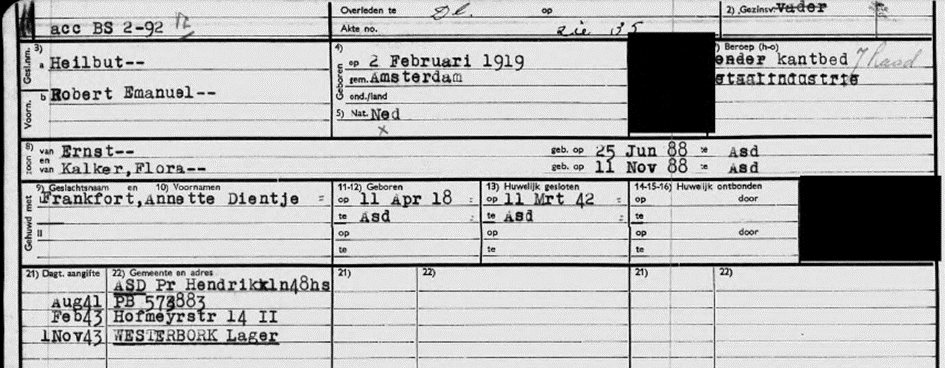 acc BS 2-92
Overleden te Dl. op
2) Gezinsv: Vader
Akte no. zie 135
3) a Gesl.nm. Heilbut--
b Voorn. Robert Emanuel--
4) Geboren op 2 Februari 1919
gem. Amsterdam
ond./land
5) Nat. Ned
x
Beroep (h-o)
ender kantbed J Raad
etaalindustrie
8) zoon van Ernst-- geb. op 25 Jun 88 te Asd
en van Kalker, Flora-- geb. op 11 Nov 88 te Asd
Gehuwd met
9) Geslachtsnaam en 10) Voornamen
11-12) Geboren
13) Huwelijk gesloten
14-15-16) Huwelijk ontbonden
Frankfort, Annette Dientje = op 11 Apr 18 = op 11 Mrt 42 = op door
te Asd : te Asd = te
II op op op door
te te te
21) Dagt. aangifte 22) Gemeente en adres 21) 22) 21) 22)
ASD Pr Hendrikkln48hs
Aug41 PB
Feb43 Hofmeyrstr 14 II
1Nov43 WESTERBORK Lager